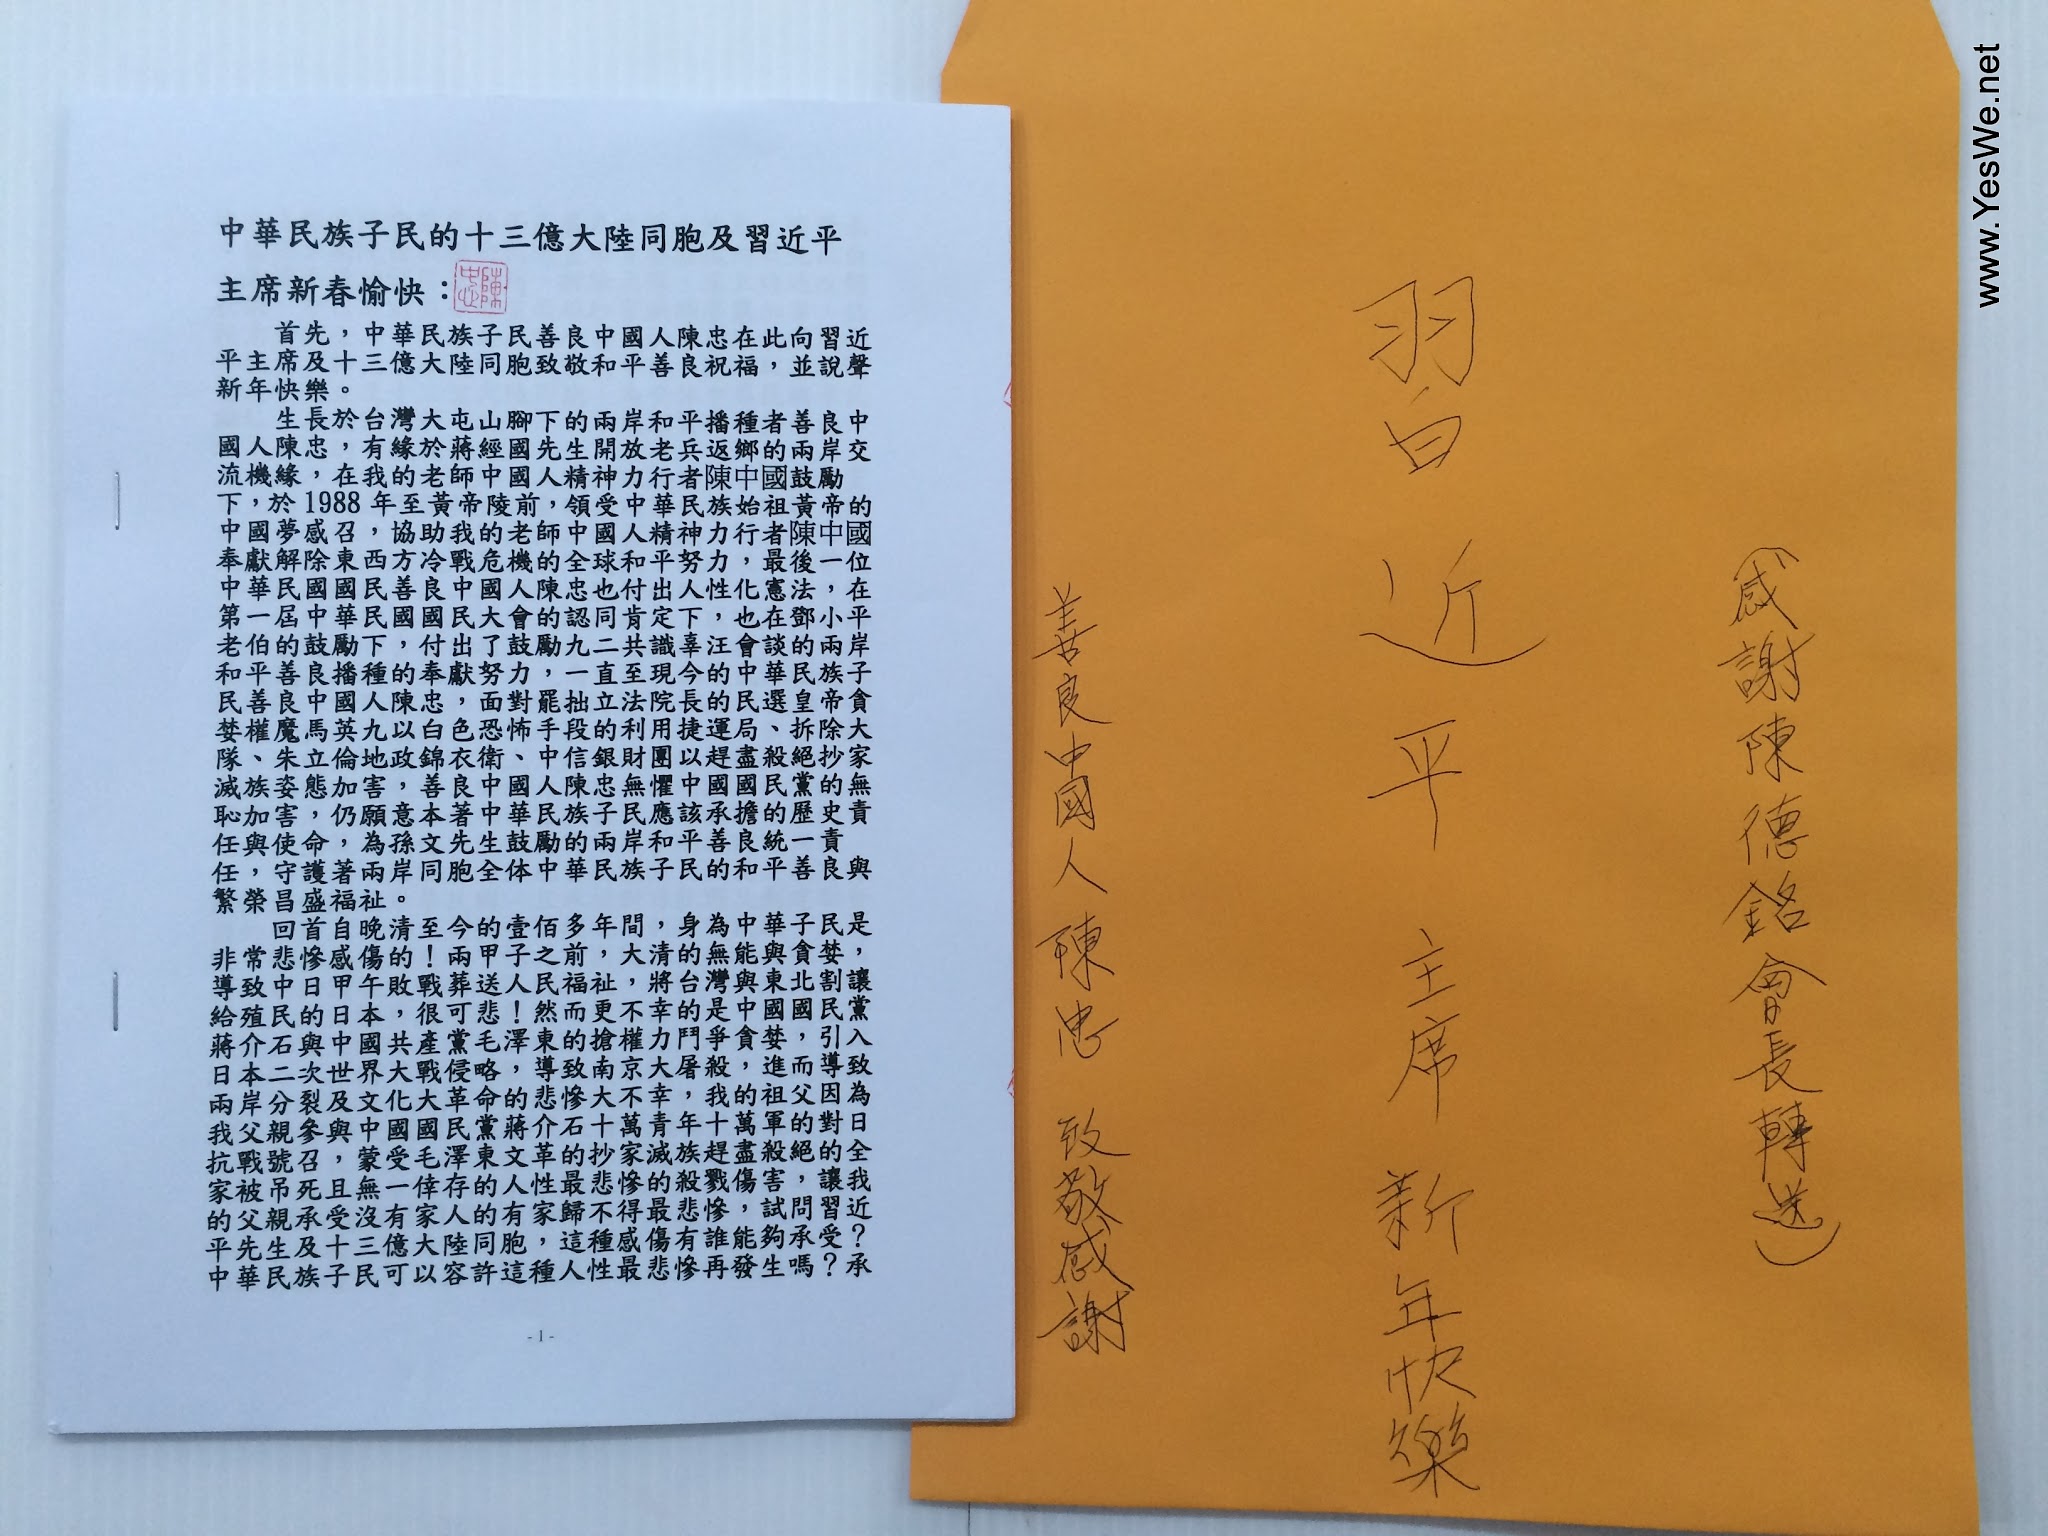 中華民族子民的十三億大陸同胞及習近平
主席新春愉快：
陳忠
首先，中華民族子民善良中國人陳忠在此向習近
平主席及十三億大陸同胞致敬和平善良祝福，並說聲
新年快樂。
生長於台灣大屯山腳下的兩岸和平播種者善良中
國人陳忠，有緣於蔣經國先生開放老兵返鄉的兩岸交
流機緣，在我的老師中國人精神力行者陳中國鼓勵
下，於 1988 年至黃帝陵前，領受中華民族始祖黃帝的
中國夢感召，協助我的老師中國人精神力行者陳中國
奉獻解除東西方冷戰危機的全球和平努力，最後一位
中華民國國民善良中國人陳忠也付出人性化憲法，在
第一屆中華民國國民大會的認同肯定下，也在鄧小平
老伯的鼓勵下，付出了鼓勵九二共識辜汪會談的兩岸
和平善良播種的奉獻努力，一直至現今的中華民族子
民善良中國人陳忠，面對罷拙立法院長的民選皇帝貪
婪權魔馬英九以白色恐怖手段的利用捷運局、拆除大
隊、朱立倫地政錦衣衛、中信銀財團以趕盡殺絕抄家
滅族姿態加害，善良中國人陳忠無懼中國國民黨的無
恥加害，仍願意本著中華民族子民應該承擔的歷史責
任與使命，為孫文先生鼓勵的兩岸和平善良統一責
任，守護著兩岸同胞全体中華民族子民的和平善良與
繁榮昌盛福祉。
回首自晚清至今的壹佰多年間，身為中華子民是
非常悲慘感傷的！兩甲子之前，大清的無能與貪婪，
導致中日甲午敗戰葬送人民福祉，將台灣與東北割讓
給殖民的日本，很可悲！然而更不幸的是中國國民黨
蔣介石與中國共產黨毛澤東的搶權力鬥爭貪婪，引入
日本二次世界大戰侵略，導致南京大屠殺，進而導致
兩岸分裂及文化大革命的悲慘大不幸，我的祖父因為
我父親參與中國國民黨蔣介石十萬青年十萬軍的對日
抗戰號召，蒙受毛澤東文革的抄家滅族趕盡殺絕的全
家被吊死且無一倖存的人性最悲慘的殺戮傷害，讓我
的父親承受沒有家人的有家歸不得最悲慘，試問習近
平先生及十三億大陸同胞，這種感傷有誰能夠承受？
中華民族子民可以容許這種人性最悲慘再發生嗎？承
-1-
（感謝陳德銘會長轉送）
習近平主席新年快樂
善良中國人陳忠致敬感謝
www.YesWe.net